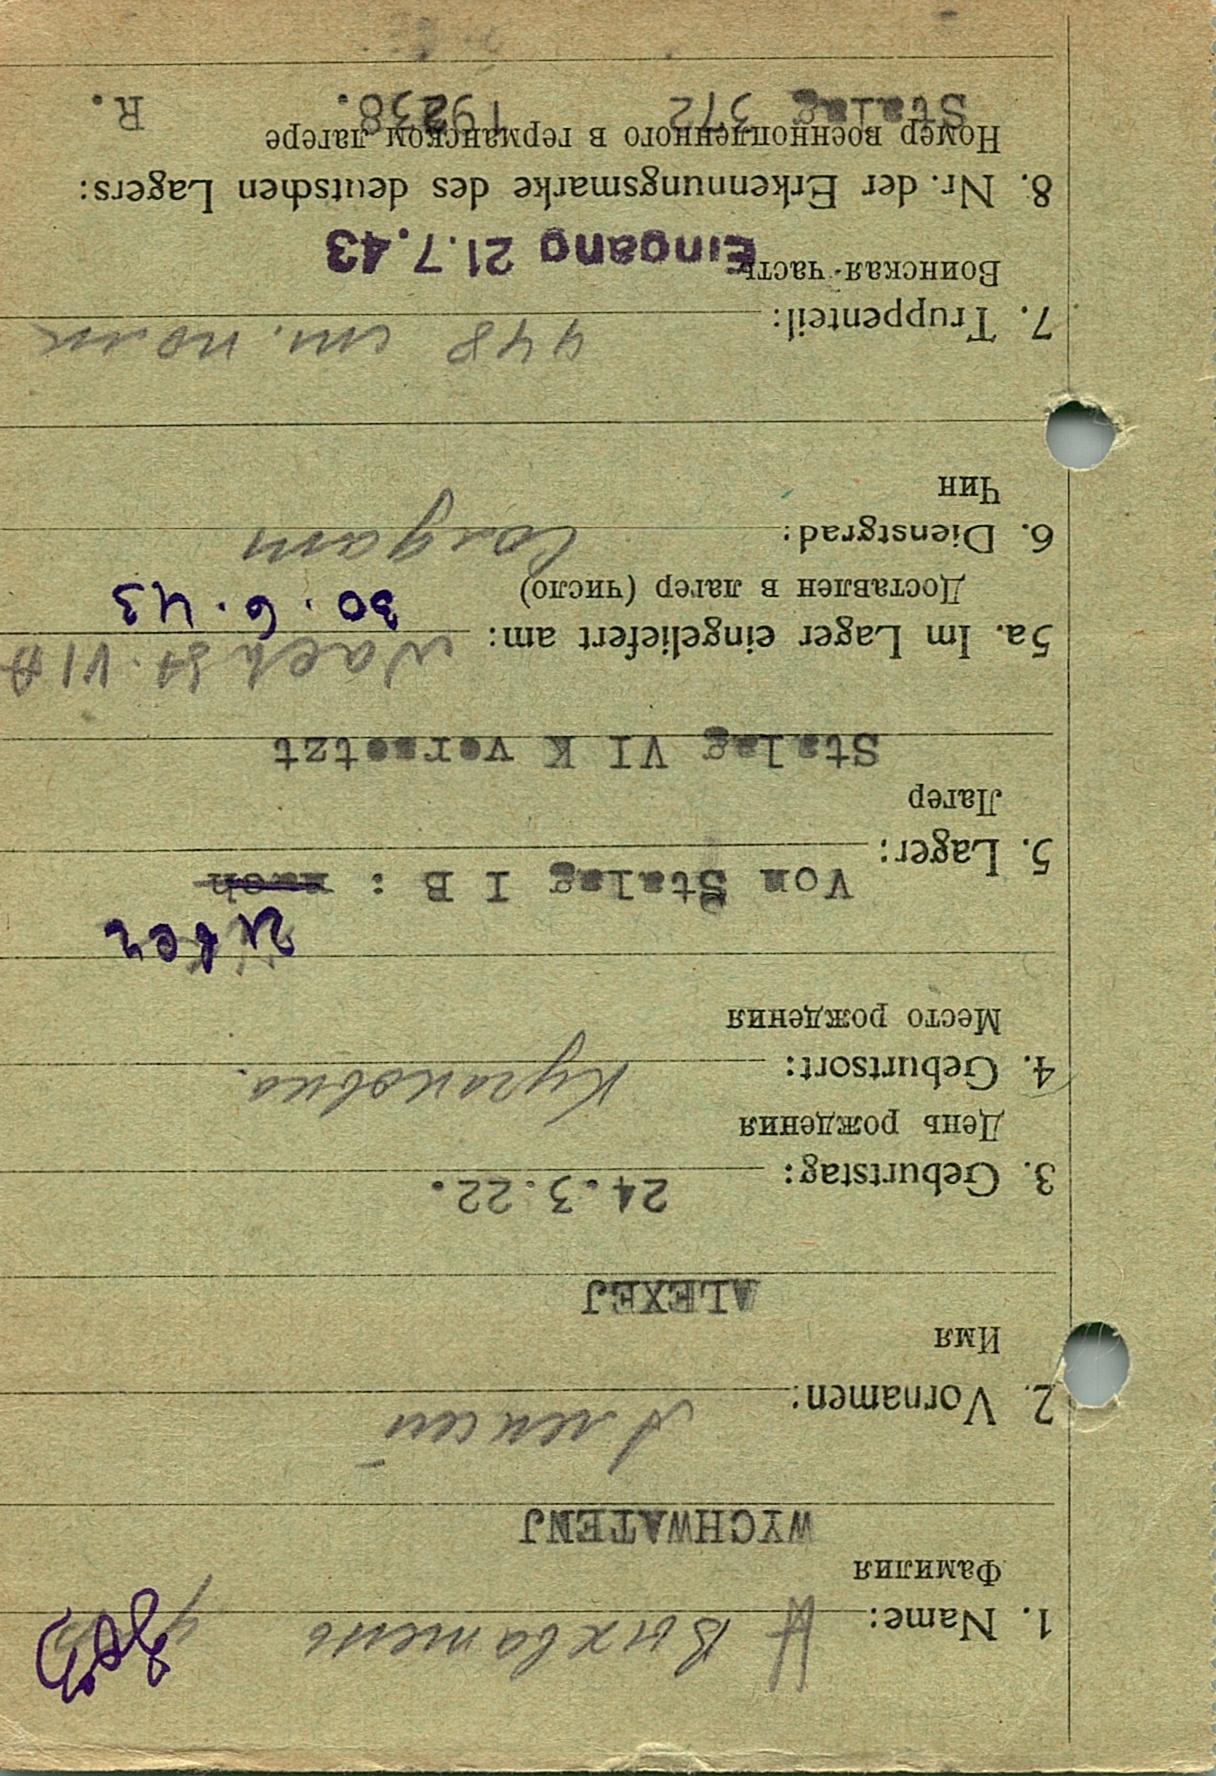 1. Name: Выхватень
Фамилия
WYCHWATENJ
2. Vornamen: Алексей
Имя
ALEXEJ
3. Geburtstag: 24.3.22.
День рождения
4. Geburtsort:
Место рождения
über
Von Stalag I B : nach
5. Lager:
Лагер
Stalag VI K versetzt
nach St. VI A
5a. Im Lager eingeliefert am: 30.6.43
Доставлен в лагер (число)
6. Dienstgrad: Солдат
Чин
7. Truppenteil: 448 ст. полк
Воинская часть
Eingang 21.7.43
8. Nr. der Erkennungsmarke des deutschen Lagers:
Номер военнопленного в германском лагере
Stalag 372 19238. R.